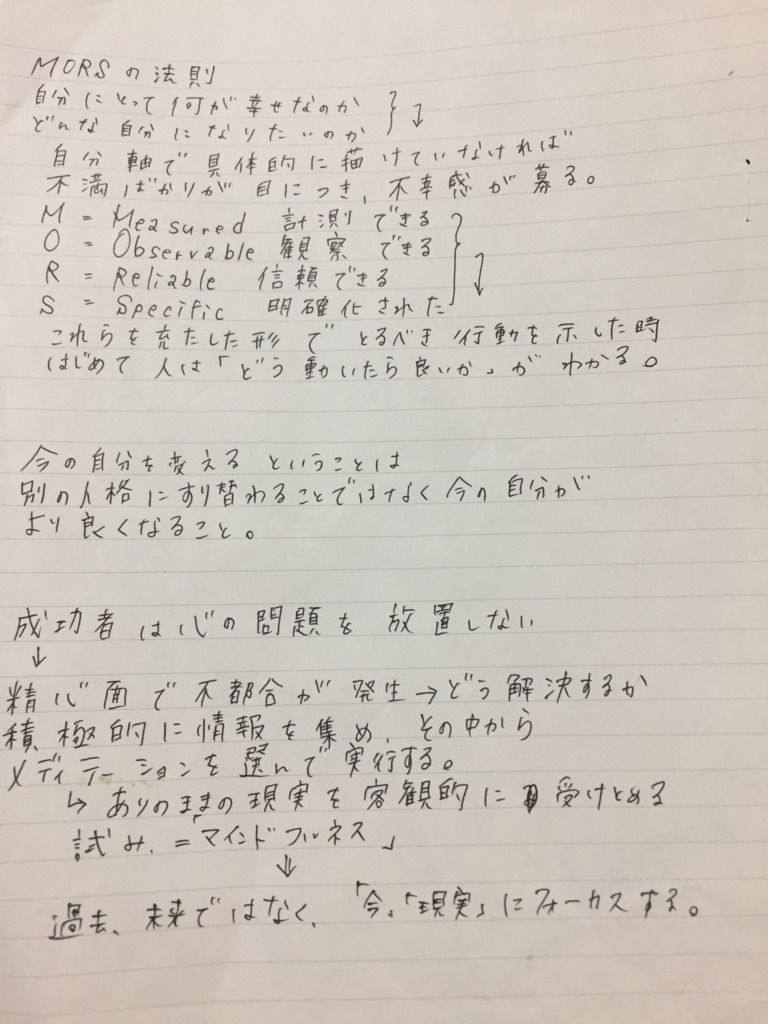 MORSの法則
自分にとって何が幸せなのか
どんな自分になりたいのか
自分軸で具体的に描けていなければ
不満ばかりが目につき、不幸感が募る。
M = Measured 計測できる
O = Observable 観察できる
R = Reliable 信頼できる
S = Specific 明確化された
これらを充たした形でとるべき行動を示した時
はじめて人は「どう動いたら良いか」がわかる。
今の自分を変えるということは
別の人格にすり替わることではなく今の自分が
より良くなること。
成功者は心の問題を放置しない
↓
精心面で不都合が発生→どう解決するか
積極的に情報を集め、その中から
メディテーションを選んで実行する。
↳ありのままの現実を客観的に受けとめる
試み、=「マインドフルネス」
⇓
過去、未来ではなく、「今」「現実」にフォーカスする。